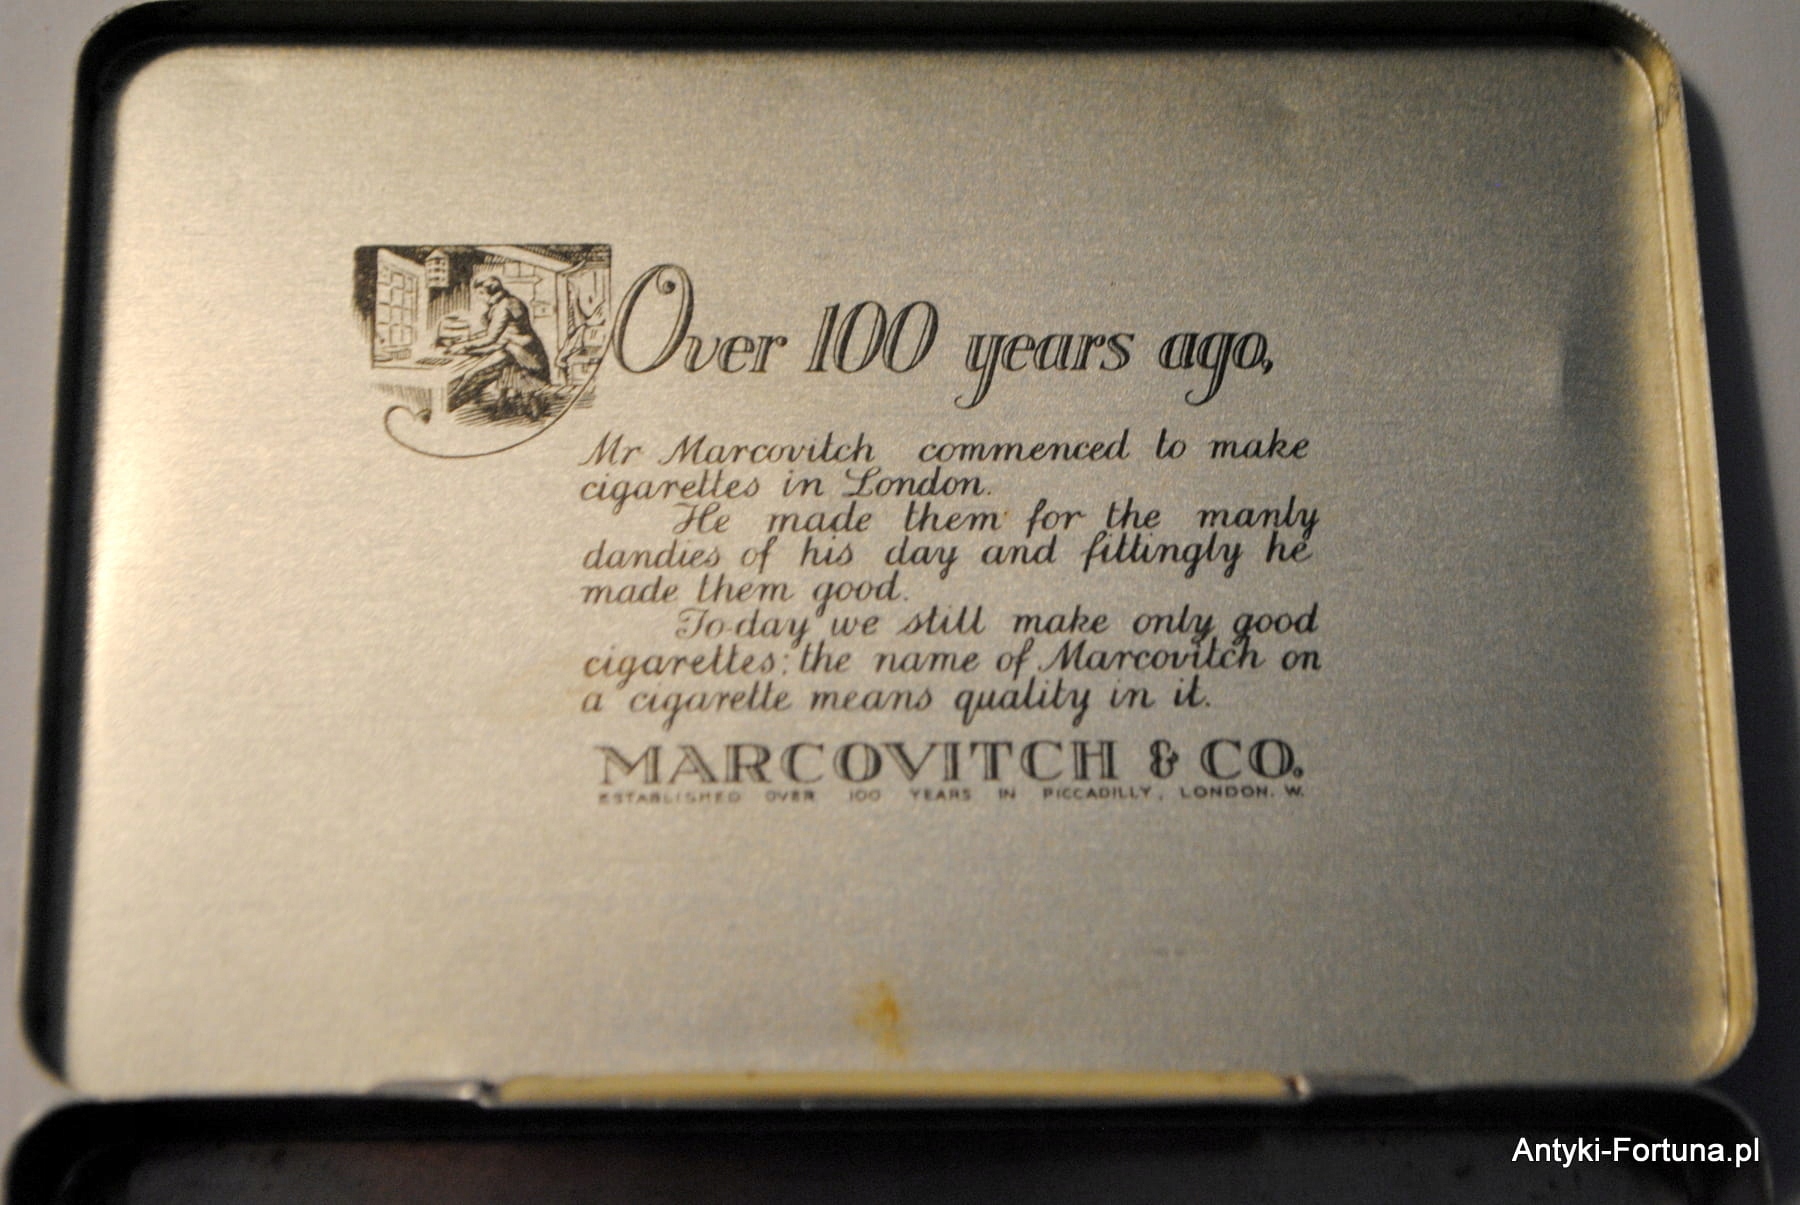 Over 100 years ago,
Mr Marcovitch commenced to make
cigarettes in London.
He made them for the manly
dandies of his day and fittingly he
made them good.
To-day we still make only good
cigarettes: the name of Marcovitch on
a cigarette means quality in it.
MARCOVITCH & CO.
ESTABLISHED OVER 100 YEARS IN PICCADILLY, LONDON. W.
Antyki-Fortuna.pl